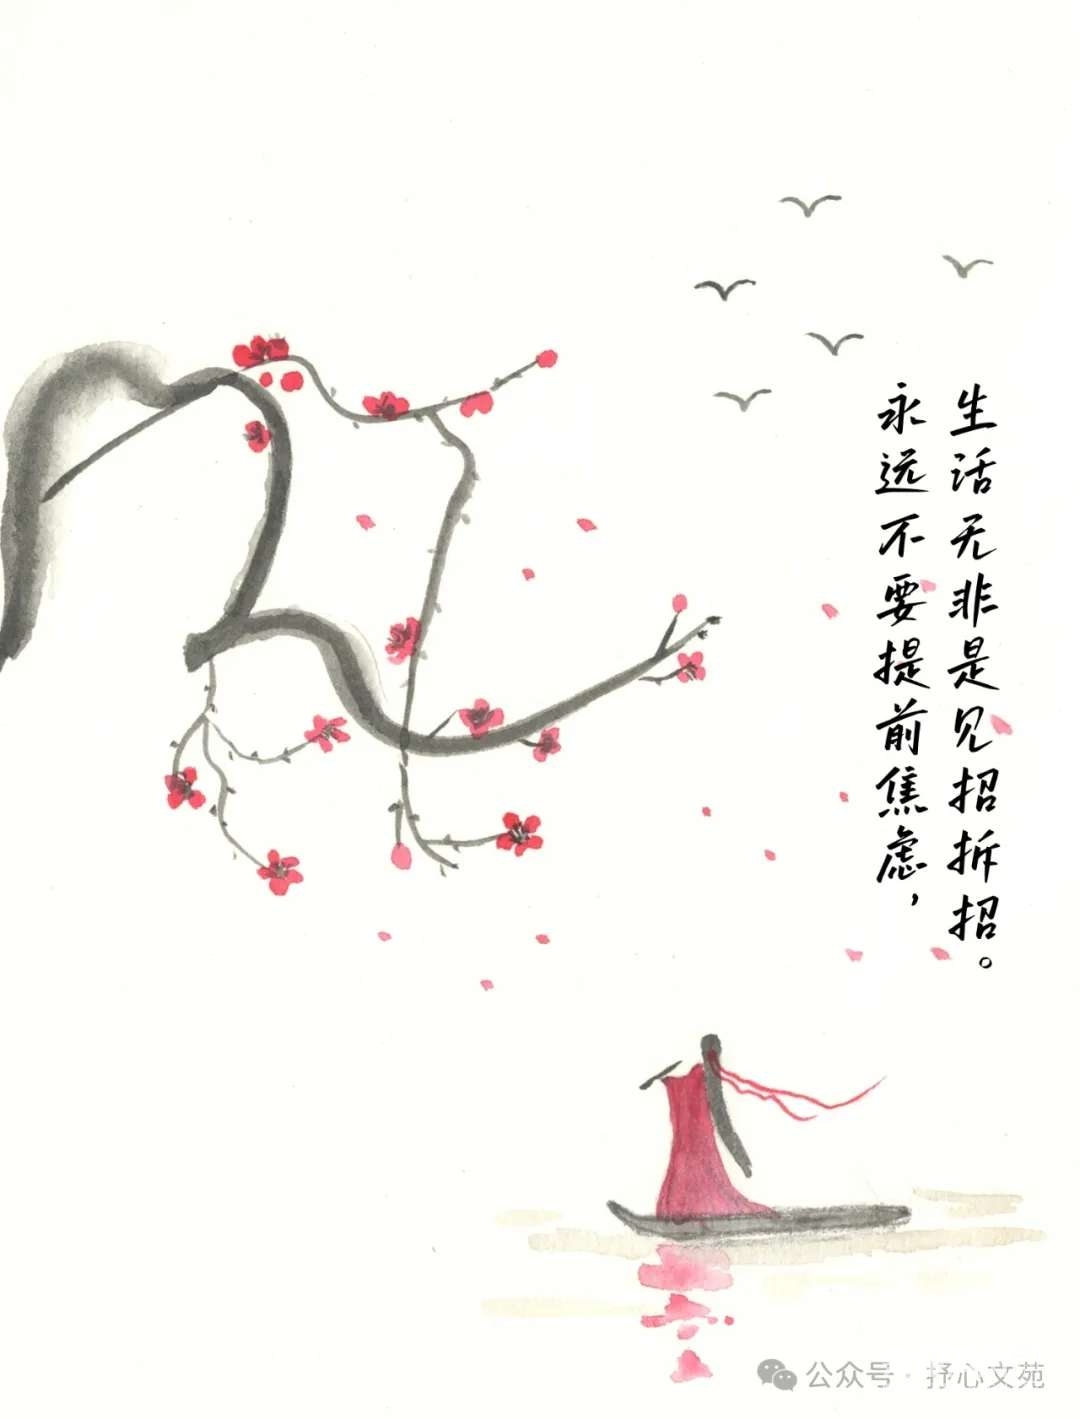 永远不要提前焦虑，
生活无非是见招拆招。
公众号·抒心文苑